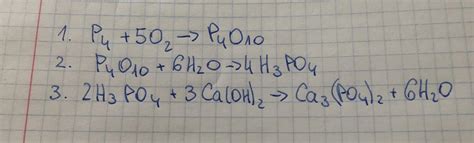 1. P₄ + 5O₂ → P₄O10
2. P₄O10 + 6H2O → 4H₃PO₄
3. 2H₃PO₄ + 3Ca(OH)₂ → Ca₃(PO₄)₂ + 6H₂O